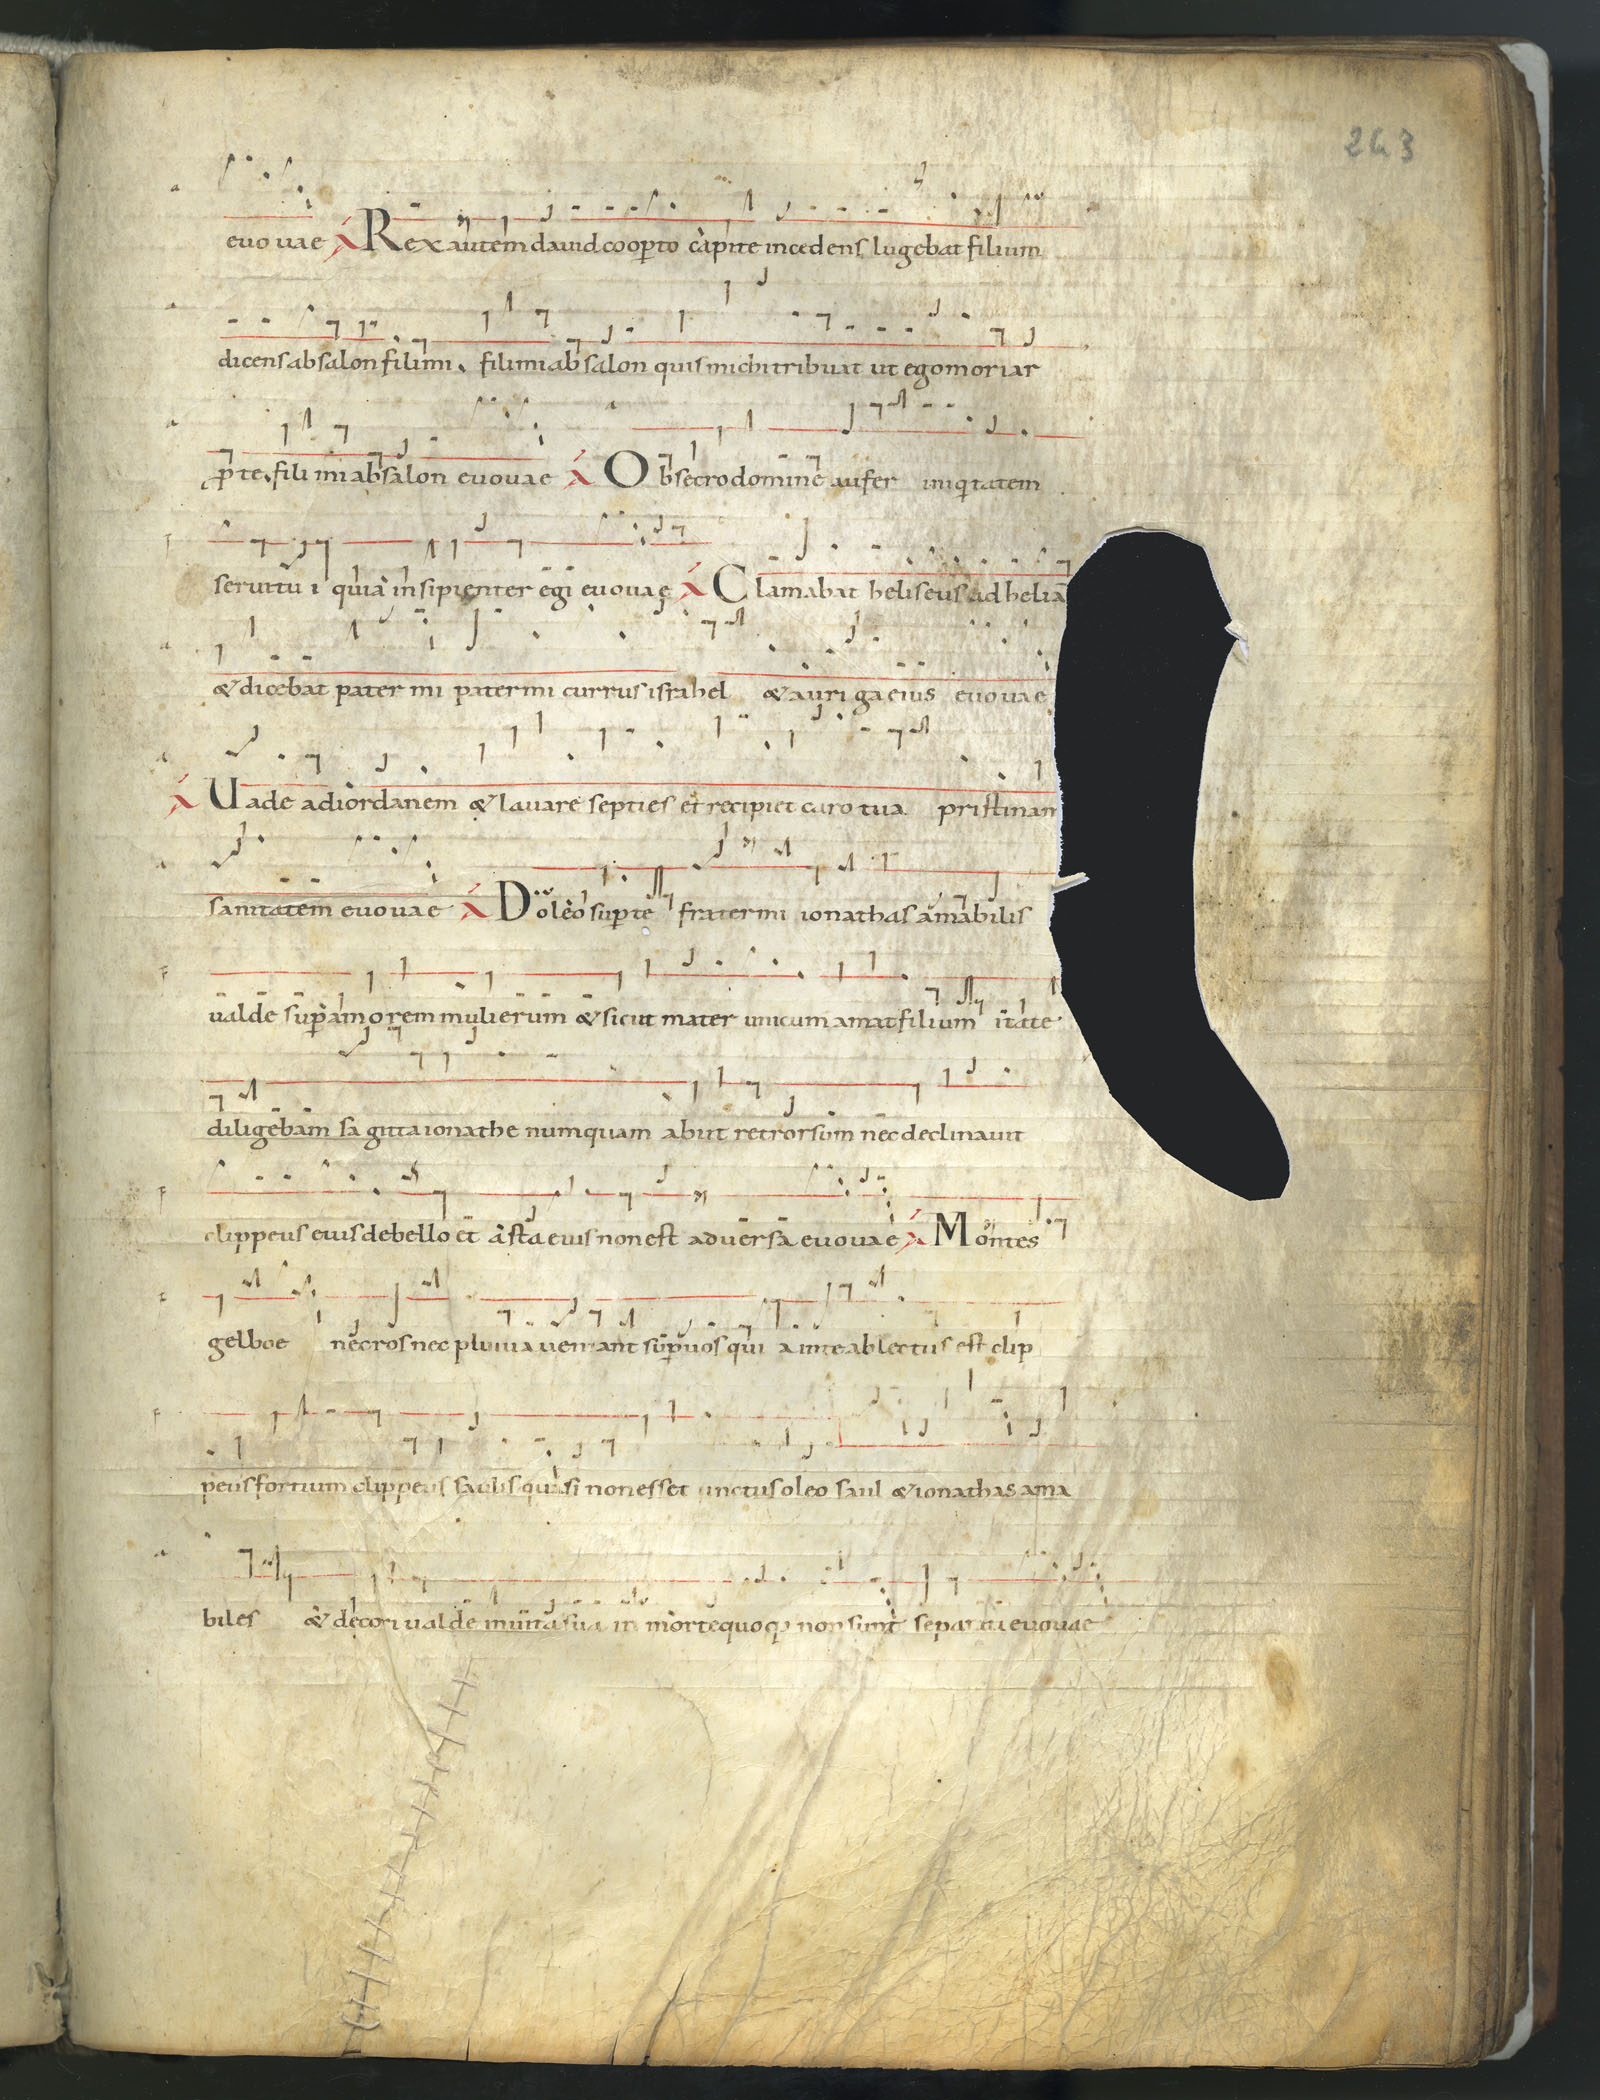 243
euouae A Rex autem dauid cooperto capite incedens lugebat filium
dicens absalon fili mi. fili mi absalon quis michi tribuat ut ego moriar
pro te. fili mi absalon euouae A Obsecro domine aufer iniqitatem
serui tui quia insipienter egi euouae A Clamabat heliseus ad heliā
& dicebat pater mi pater mi currus israhel & auriga eius euouae
A Uade ad iordanem & lauare septies et recipiet caro tua pristinam
sanitatem euouae A Doleo super te frater mi ionathas amabilis
ualde super amorem mulierum & sicut mater unicum amat filium ita te
diligebam sagitta ionathe numquam abiit retrorsum nec declinauit
clippeus eius de bello et asta eius non est aduersa euouae A Montes
gelboe nec ros nec pluuia ueniant super uos qui a in te ablectus est clip
peus fortium clippeus saulis quasi non esset unctus oleo saul & ionathas ama
biles & decori ualde in uita sua in morte quoq non sunt separati euouae